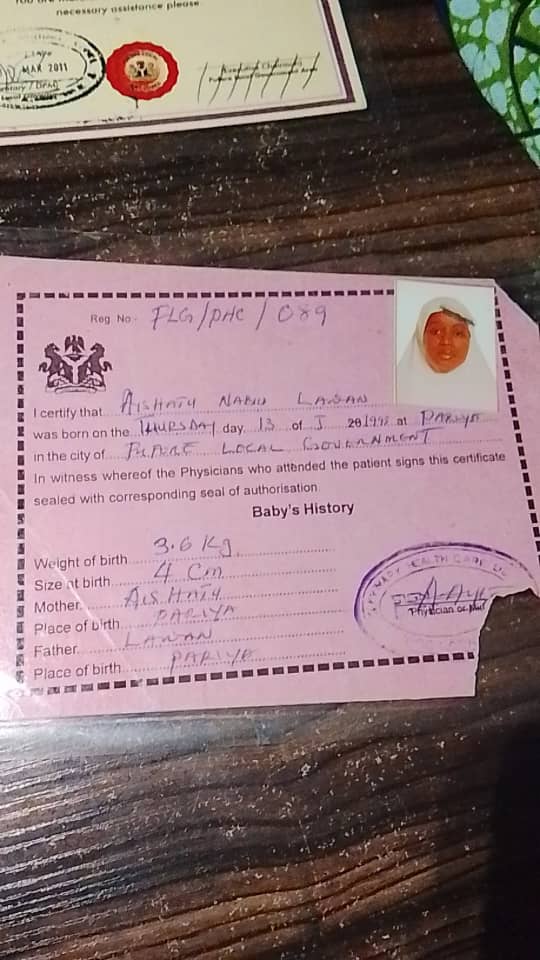 necessary assistance please.
MAR 2011
Reg. No:- FLG/PHC/089
I certify that AISHATU NABIU LAWAN
was born on the THURSDAY day 13 of J 201998 at PARIYA
in the city of FUFORE LOCAL GOVERNMENT
In witness whereof the Physicians who attended the patient signs this certificate
sealed with corresponding seal of authorisation
Baby's History
Weight of birth 3.6 Kg
Size at birth 4 Cm
Mother AISHATU
Place of birth PARIYA
Father LAWAN
Place of birth PARIYA
PRIMARY HEALTH CARE
Physician